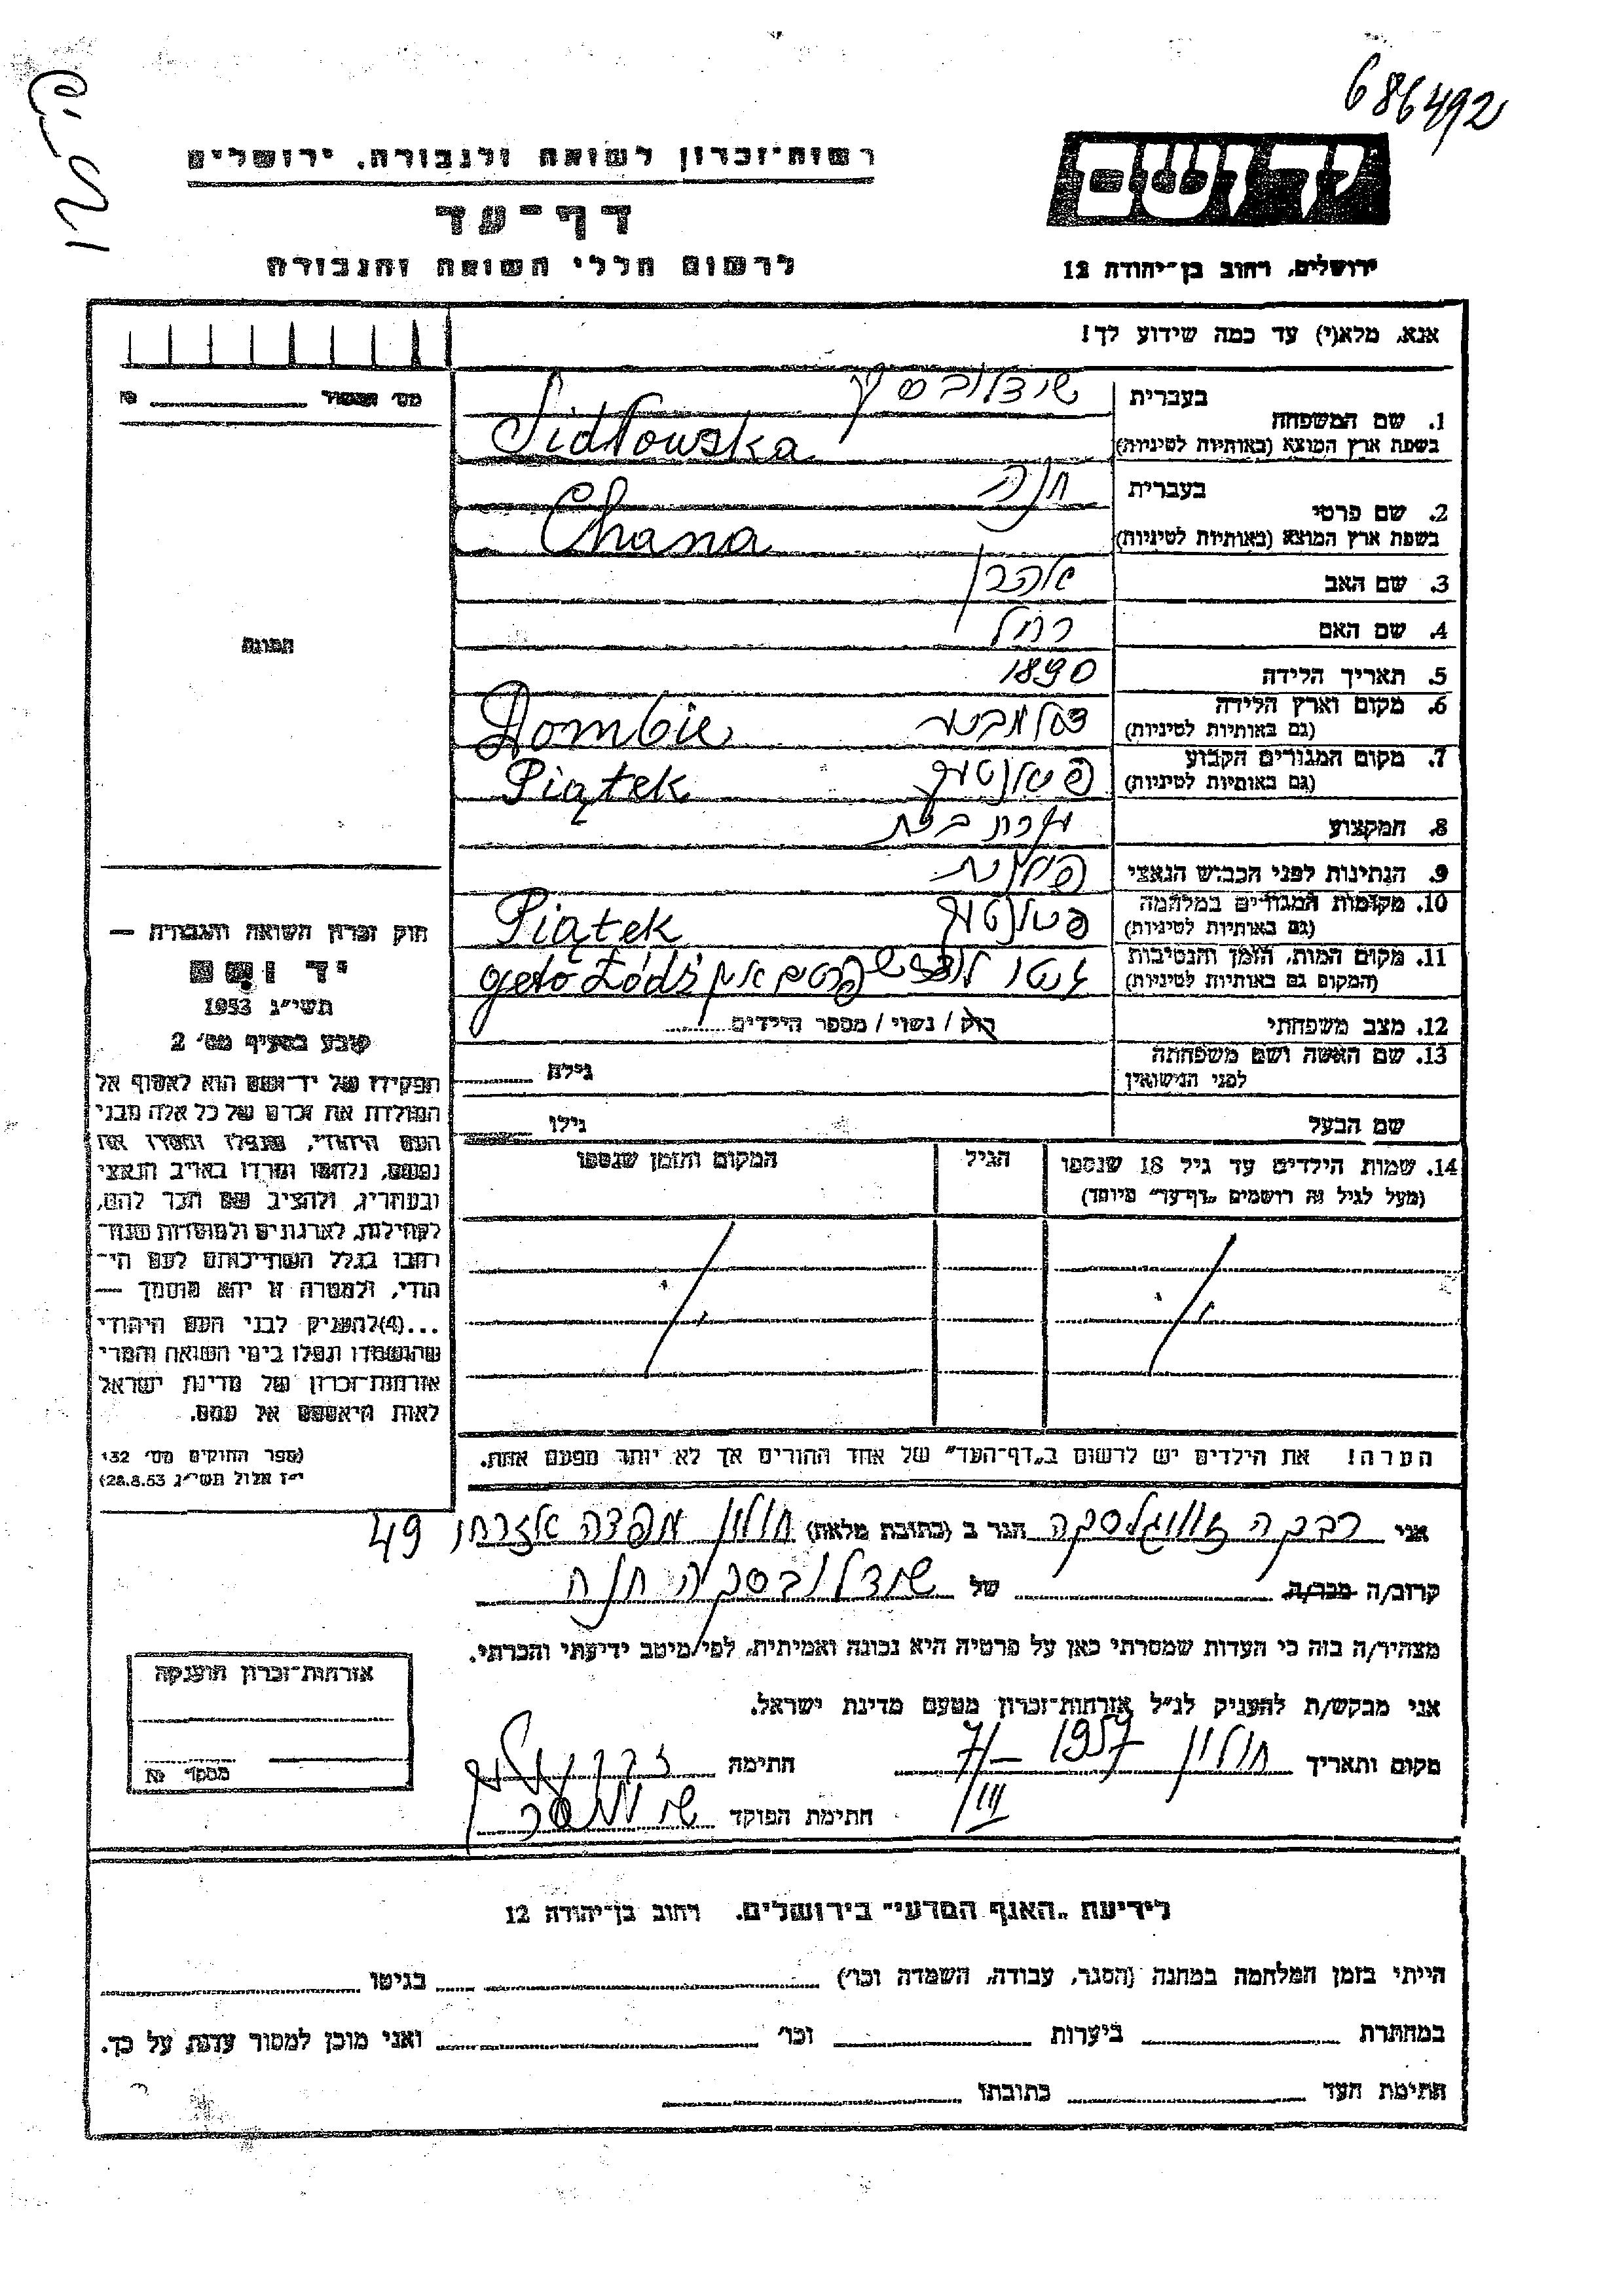 686492
רשות־זכרון לשואה ולגבורה, ירושלים
דף־עד
לרשום חללי השואה והגבורה
יד ושם
ירושלים, רחוב בן־יהודה 12
אנא, מלא(י) עד כמה שידוע לך!
מס׳
1. שם המשפחה
בעברית
בשפת ארץ המוצא (באותיות לטיניות) Sidłowska
2. שם פרטי
בעברית חנה
בשפת ארץ המוצא (באותיות לטיניות) Chana
3. שם האב
4. שם האם רחל
5. תאריך הלידה 1890
6. מקום וארץ הלידה
(גם באותיות לטיניות) Dombie
7. מקום המגורים הקבוע
(גם באותיות לטיניות) Piątek
8. המקצוע עקרת בית
9. הנתינות לפני הכבוש הנאצי פולנית
10. מקומות המגורים במלחמה
(גם באותיות לטיניות) Piątek
11. מקום המות, הזמן והנסיבות
(המקום גם באותיות לטיניות) geto Łódź
12. מצב משפחתי רוק / נשוי / מספר הילדים
13. שם האשה ושם משפחתה
לפני הנישואין גילה
שם הבעל גילו
14. שמות הילדים עד גיל 18 שנספו
(מעל לגיל זה רושמים „דף־עד״ מיוחד)
הגיל
המקום והזמן שנספו
הערה! את הילדים יש לרשום ב„דף־העד״ של אחד ההורים אך לא יותר מפעם אחת.
התמונה
חוק זכרון השואה והגבורה —
יד ושם
תשי״ג 1953
קובע בסעיף מס׳ 2
תפקידו של יד־ושם הוא לאסוף אל
המולדת את זכרם של כל אלה מבני
העם היהודי, שנפלו ומסרו את
נפשם, נלחמו ומרדו באויב הנאצי
ובעוזריו, ולהציב שם וזכר להם,
לקהילות, לארגונים ולמוסדות שנח־
רבו בגלל השתייכותם לעם הי־
הודי, ולמטרה זו יהא מוסמך —
...(4)להעניק לבני העם היהודי
שהושמדו ונפלו בימי השואה והמרי
אזרחות־זכרון של מדינת ישראל
לאות היאספם אל עמם.
(ספר החוקים מס׳ 132
י״ז אלול תשי״ג 28.8.53)
אני רבקה הגר ב (כתובת מלאה) חולון 49
קרוב/ה מכר/ה של שידלובסקה חנה
מצהיר/ה בזה כי העדות שמסרתי כאן על פרטיה היא נכונה ואמיתית, לפי מיטב ידיעתי והכרתי.
אני מבקש/ת להעניק לנ״ל אזרחות־זכרון מטעם מדינת ישראל.
מקום ותאריך חולון 7/III – 1957 חתימה
חתימת הפוקד
אזרחות־זכרון הוענקה
מספר №
לידיעת „האגף המדעי״ בירושלים, רחוב בן־יהודה 12
הייתי בזמן המלחמה במחנה (הסגר, עבודה, השמדה וכו׳) בגיטו
במחתרת ביערות וכו׳ ואני מוכן למסור עדות על כך.
חתימת העד כתובתו